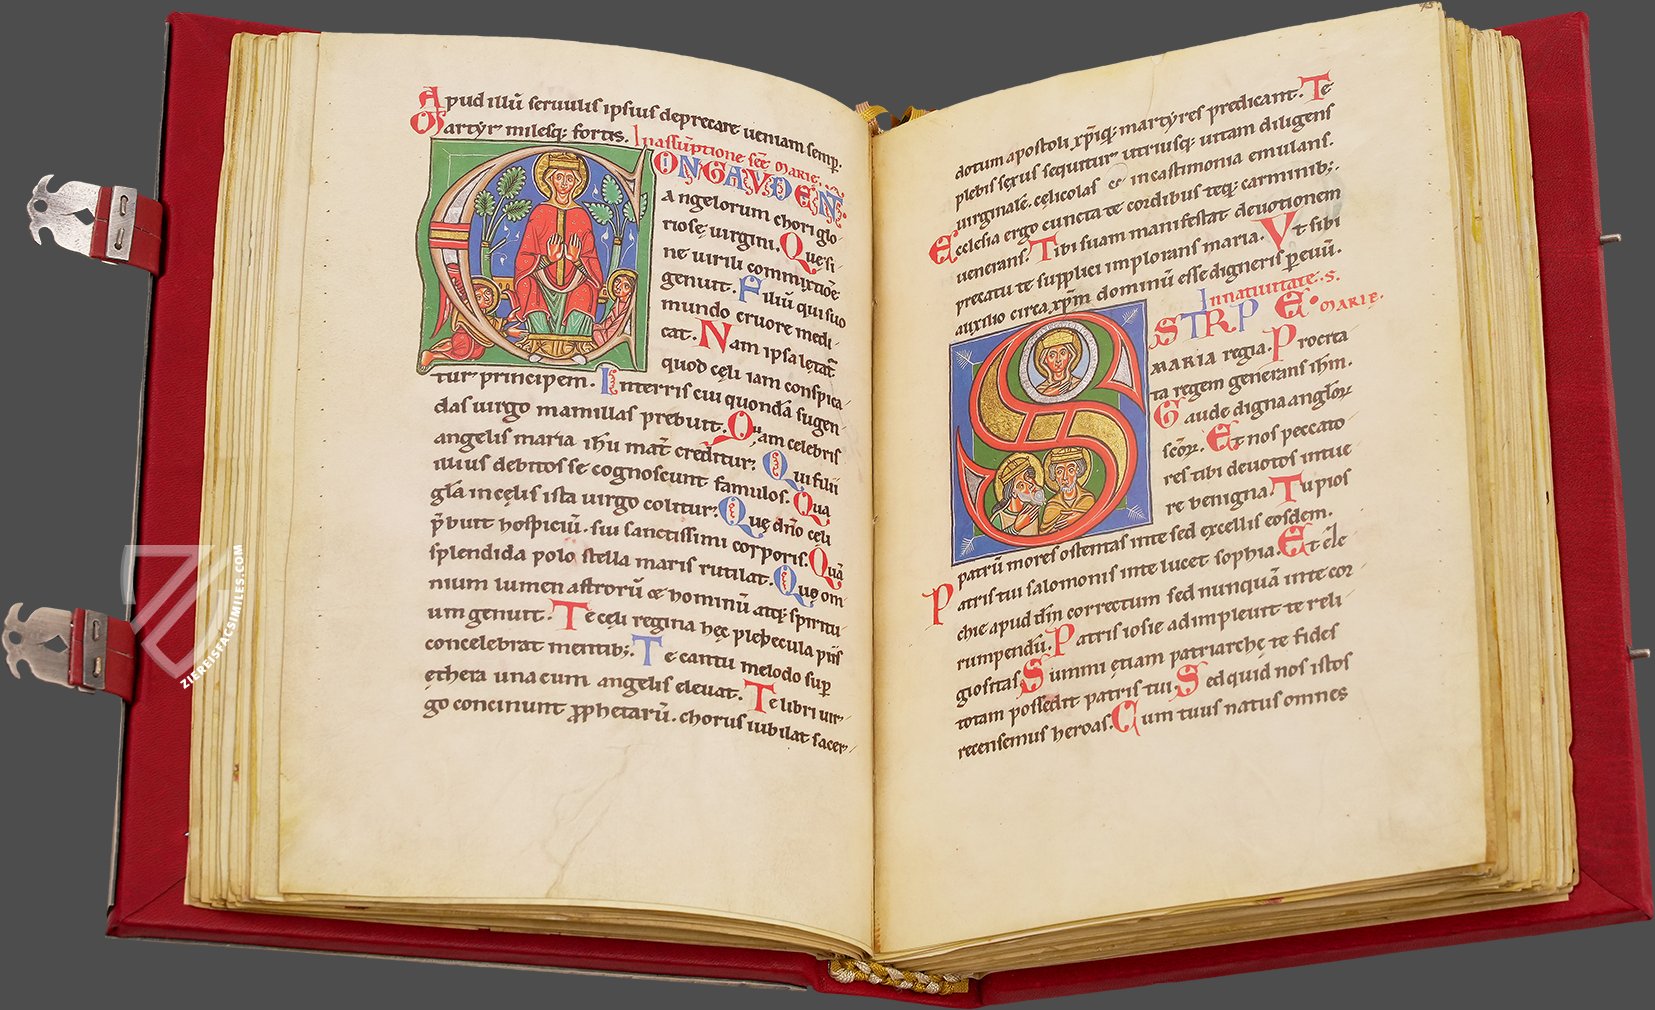 Apud illũ seruulis ipsius deprecare ueniam semp̱.
Martyr milesq; fortis. In assũptione sc̃e Marie.
CONGAVDENT
angelorum chori glo-
riosę uirgini. Quę si-
ne uirili commixtiõe
genuit. Filiũ qui suo
mundo cruore medi-
cat. Nam ipsa lętat̃
quod cęli iam conspica-
tur principem. In terris cui quondã sugen-
das uirgo mamillas prebuit. Quam celebris
angelis maria ihũ mat̃ creditur; Qui filii
illius debitos se cognoscunt famulos. Qua
gl̃a in cęlis ista uirgo colitur; Quę dñо cęli
p̃buit hospiciũ. sui sanctissimi corporis. Quã
splendida polo stella maris rutilat. Quę om-
nium lumen astrorũ & hominũ atq; spiritu-
um genuit. Te cęli regina hęc plebecula piis
concelebrat mentib;. Te cantu melodo sup̱
ęthera una cum angelis eleuat. Te libri uir-
go concinunt ꝓphetarũ. chorus iubilat sacer-
dotum apostoli xp̃iq; martyres predicant. Te
plebis sexus sequitur utriusq; uitam diligens
uirginalę. cęlicolas in castimonia ęmulans.
Ecclesia ergo cuncta te cordibus teq; carminib;.
uenerans. Tibi suam manifestat deuotionem
precatu te supplici implorans maria. Vt sibi
auxilio circa xp̃m dominũ esse digneris p̱euũ.
In natiuitate. s. MARIE.
STIRPE
MARIA regia. Procrea
ta regem generans ihm̃.
Gaude digna angloꝝ
sc̃oꝝ. Et nos peccato
res tibi deuotos intue
re benigna. Tu pios
patrũ mores ostentas in te sed excellis eosdem.
Patris tui salomonis in te lucet sophia. Et eze-
chie apud dm̃ correctum sed nunquã in te cor-
rumpendũ. Patris iosie adimpleuit te reli-
giositas Summi ętiam patriarchę te fides
totam possedit patris tui Sed quid nos istos
recensemus heroas. Cum tuus natus omnes
ZIEREISFACSIMILES.COM